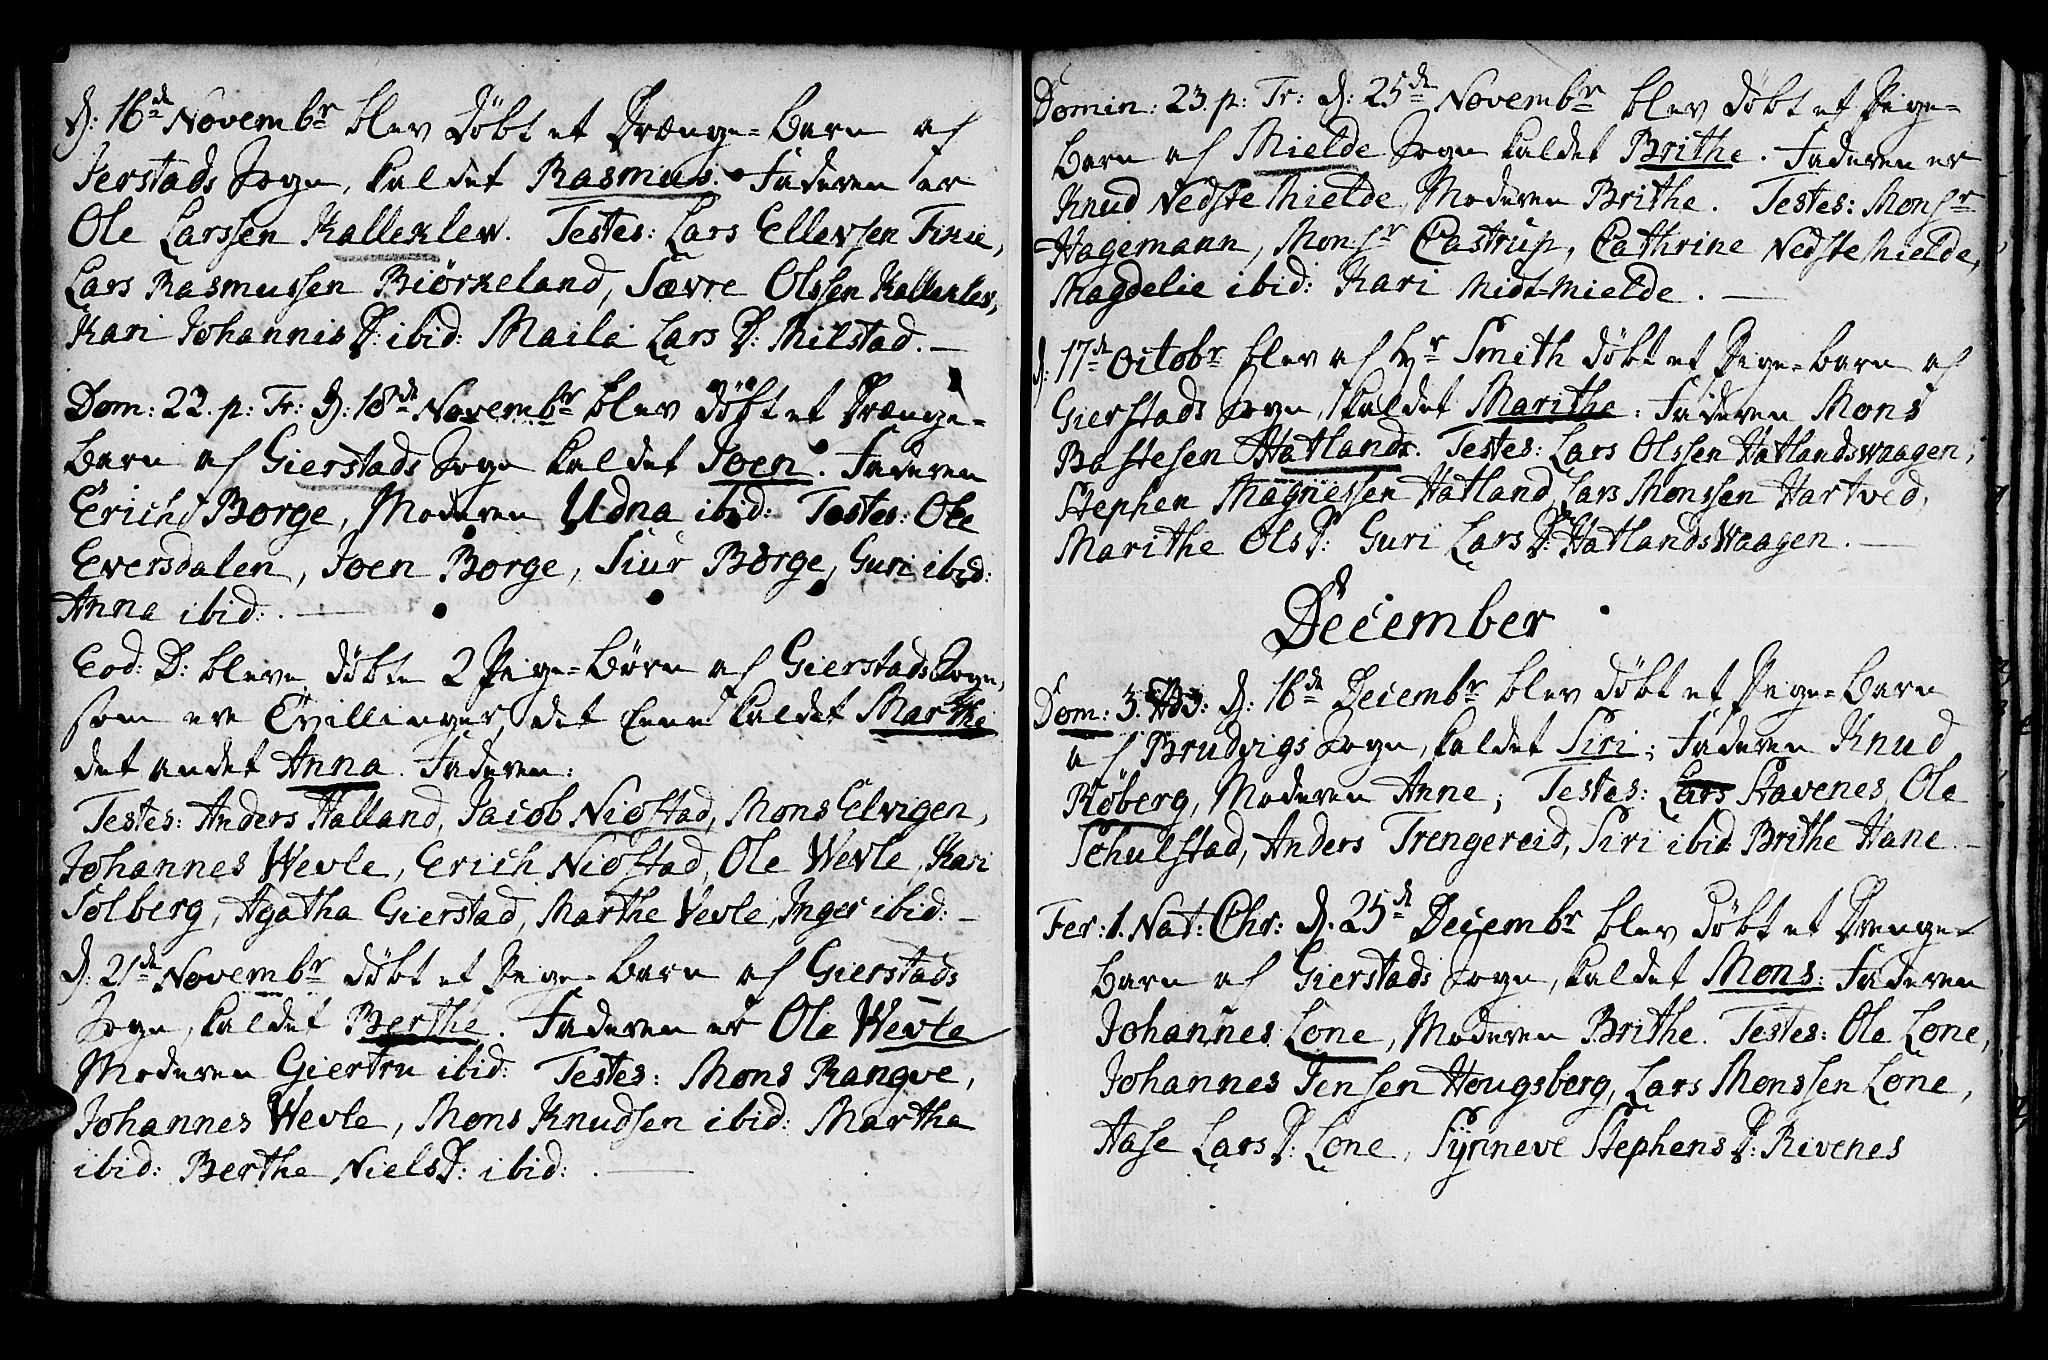 d: 16de Novembr blev døbt et Drænge-Barn af
Jerstads Sogn, kaldet Rasmus. Faderen er
Ole Larssen Kalleklev. Testes: Lars Ellevsen
Lars Rasmussen Biørkeland, Sævre Olssen Kalleklev,
Kari Johannis D: ibid: Maila Lars D: Milstad.
Dom: 22. p: Tr: d: 18de Novembr blev døbt et Drænge-
Barn af Gierstads Sogn kaldet Joen. Faderen
Erich Borge, Moderen Udna ibid: Testes: Ole
Eversdalen, Joen Borge, Siur Borge, Guri ibid:
Anna ibid:.
Eod: D: bleve døbte 2 Pige-Børn af Gierstads Sogn,
som ere Tvillinger, det Eene kaldet Marthe
det andet Anna. Faderen:
Testes: Anders Halland, Jacob Niøstad, Mons Elvigen,
Johannes Wevle, Erich Niøstad, Ole Wevle, Kari
Solberg, Agatha Gierstad, Marthe Vevle, Inger ibid:
d: 21de Novembr døbt et Pige-Barn af Gierstads
Sogn, kaldet Berthe. Faderen er Ole Wevle
Moderen Giertru ibid: Testes: Mons Rangve,
Johannes Wevle, Mons Knudsen ibid: Martha
ibid: Berthe Niels D: ibid:.
Domin: 23 p: Tr: d: 25de Novembr blev døbt et Pige-
Barn af Mielde Sogn kaldet Brithe. Faderen er
Knud Nedste Mielde, Moderen Brithe. Testes: Monsr
Hagemann, Monsr Castrup, Cathrine Nedste Mielde,
Magdelie ibid: Kari Midt-Mielde.
d: 17de Octobr blev af Hr Smith døbt et Pige-Barn af
Gierstads Sogn, kaldet Marithe. Faderen Mons
Bastesen Hatland. Testes: Lars Olssen Hatlandswaagen,
Stephen Magnessen Hatland, Lars Monssen Hartved,
Marithe Ols D: Guri Lars D: HatlandsWaagen.
December
Dom: 3. Adv: d: 16de Decembr blev døbt et Pige-Barn
af Brudvigs Sogn, kaldet Siri; Faderen Knud
Røberg, Moderen Anne; Testes: Lars Stavenes, Ole
Schulstad, Anders Trengereid, Siri ibid: Brithe Hane.
Fer: 1. Nat: Chr: d. 25de Decembr blev døbt et Drenge-
Barn af Gierstads Sogn, kaldet Mons: Faderen
Johannes Lone, Moderen Brithe. Testes: Ole Lone,
Johannes Jensen Hougsberg, Lars Monssen Lone,
Aase Lars D: Lone, Synneve Stephens D: Rivenes